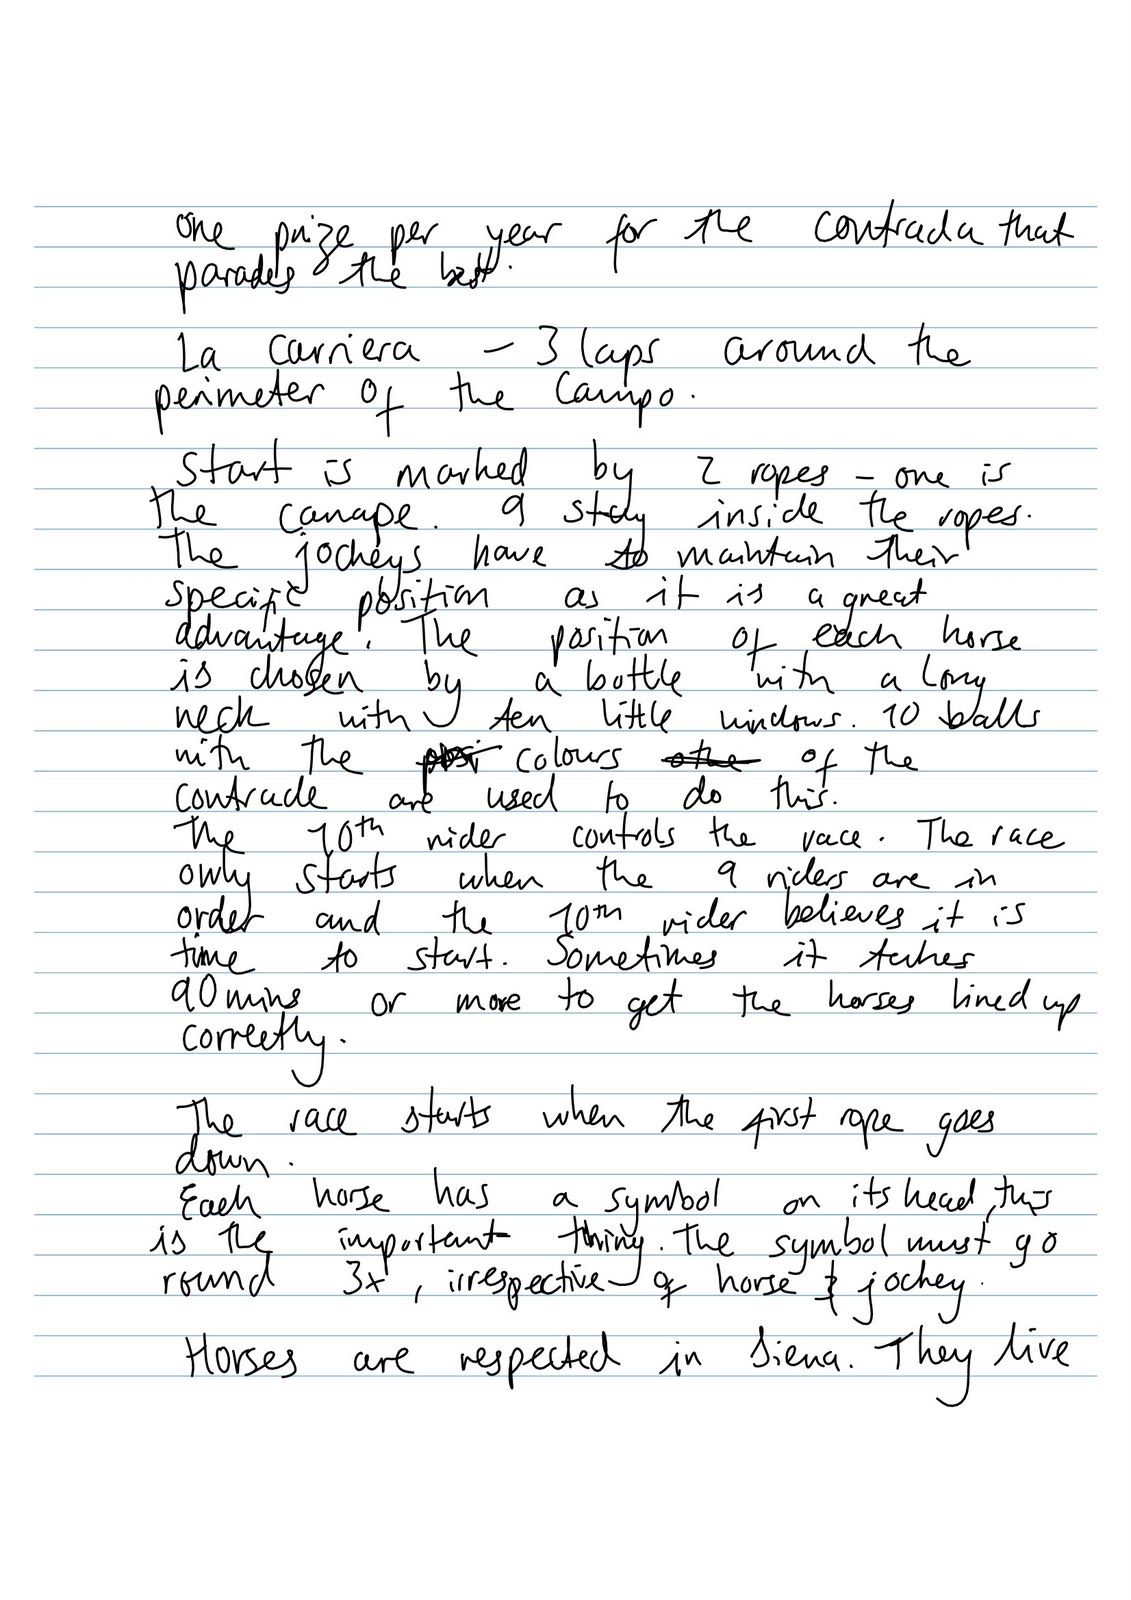 one prize per year for the contrada that
parades the best.
La Carriera – 3 laps around the
perimeter of the Campo.
Start is marked by 2 ropes – one is
the canape. 9 stay inside the ropes.
The jockeys have to maintain their
specific position as it is a great
advantage. The position of each horse
is chosen by a bottle with a long
neck with ten little windows. 10 balls
with the colours of the
contrade are used to do this.
The 10th rider controls the race. The race
only starts when the 9 riders are in
order and the 10th rider believes it is
time to start. Sometimes it takes
90mins or more to get the horses lined up
correctly.
The race starts when the first rope goes
down.
Each horse has a symbol on its head, this
is the important thing. The symbol must go
round 3x, irrespective of horse & jockey.
Horses are respected in Siena. They live